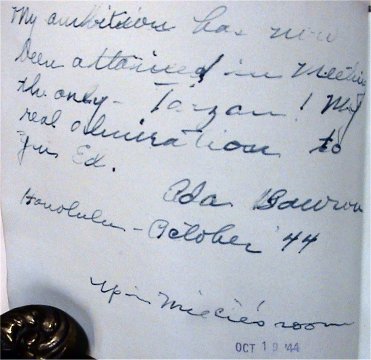 My ambition has now
been attained in meeting
the only - Tarzan! My
real admiration to
you Ed.
Ada
Honolulu - October '44
Up in room
OCT 19 '44